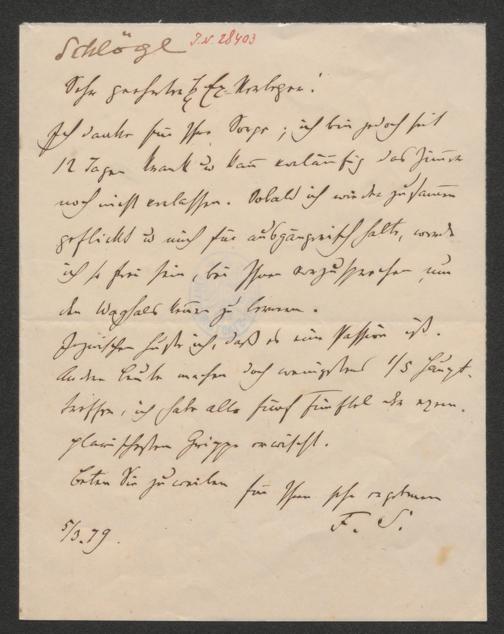 Schlögl
I.N. 28403
Sehr geehrter Ex-Kollege!
Ich danke für Ihre Sorge; ich bin jedoch seit
12 Tagen krank u kann vorläufig das Zimmer
noch nicht verlassen. Sobald ich wieder zusammen
geflickt u mich für ausgängerisch halte, werde
ich so frei sein, bei Ihnen vorzusprechen um
den Waghals kennen zu lernen.
Inzwischen huste ich, daß es eine Passion ist.
Andere Leute machen doch wenigstens 1/5 Haupt-
treffer, ich habe alle fünf Fünftel der exem-
plarischesten Grippe erwischt.
Beten Sie zuweilen für Ihren sehr ergebenen
F. S.
5/3. 79.